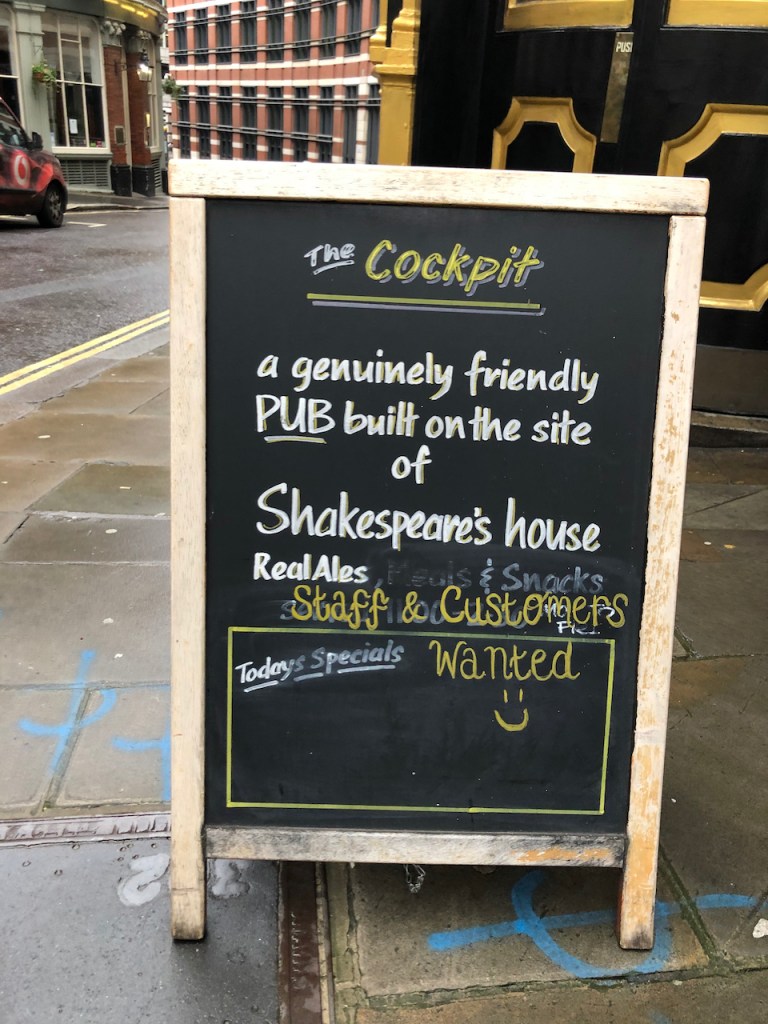 PUSH
The Cockpit
a genuinely friendly
PUB built on the site
of
Shakespeare's house
Real Ales, Meals & Snacks
Staff & Customers
Todays Specials Wanted